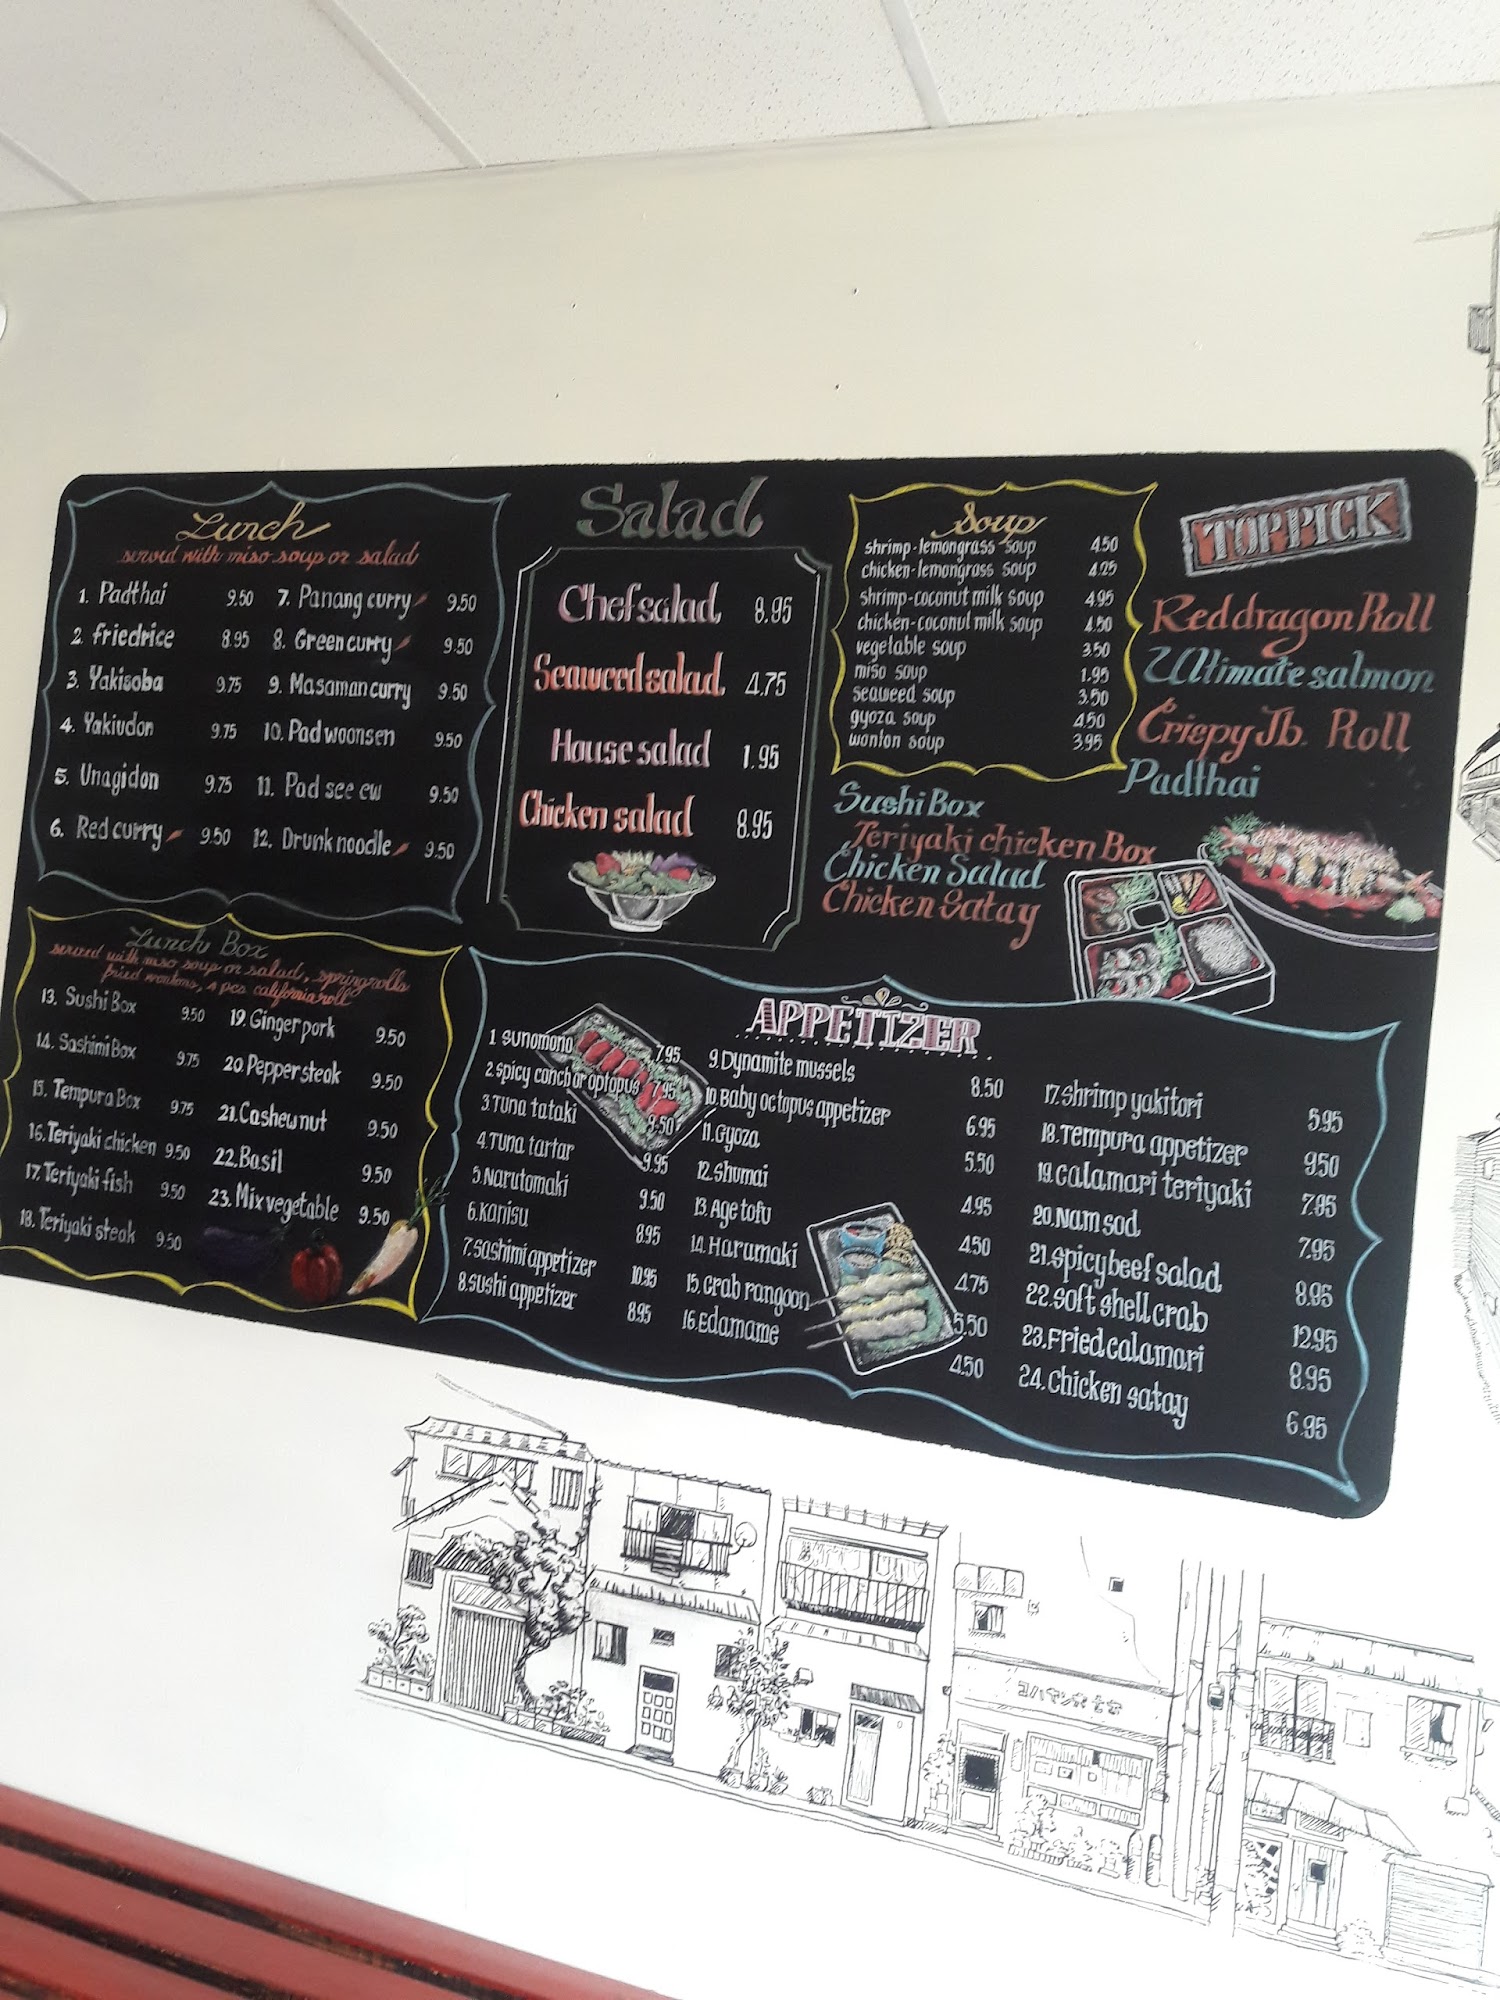 Lunch
served with miso soup or salad
1. Padthai 9.50
2. friedrice 8.95
3. Yakisoba 9.75
4. Yakiudon 9.75
5. Unagidon 9.75
6. Red curry 9.50
7. Panang curry 9.50
8. Green curry 9.50
9. Masaman curry 9.50
10. Pad woonsen 9.50
11. Pad see ew 9.50
12. Drunk noodle 9.50
Salad
Chef salad 8.95
Seaweed salad 4.75
House salad 1.95
Chicken salad 8.95
Soup
shrimp-lemongrass soup 4.50
chicken-lemongrass soup 4.25
shrimp-coconut milk soup 4.95
chicken-coconut milk soup 4.50
vegetable soup 3.50
miso soup 1.95
seaweed soup 3.50
gyoza soup 4.50
wonton soup 3.95
TOP PICK
Red dragon Roll
Ultimate salmon
Crispy Jb. Roll
Padthai
Sushi Box
Teriyaki chicken Box
Chicken Salad
Chicken Satay
Lunch Box
served with miso soup or salad, springrolls
fried wontons, 4 pcs california roll
13. Sushi Box 9.50
14. Sashimi Box 9.75
15. Tempura Box 9.75
16. Teriyaki chicken 9.50
17. Teriyaki fish 9.50
18. Teriyaki steak 9.50
19. Ginger pork 9.50
20. Pepper steak 9.50
21. Cashew nut 9.50
22. Basil 9.50
23. Mix vegetable 9.50
APPETIZER
1. Sunomono 7.95
2. Spicy conch or optopus 7.95
3. Tuna tataki 9.50
4. Tuna tartar 9.95
5. Narutomaki 9.50
6. Kanisu 8.95
7. Sashimi appetizer 10.95
8. Sushi appetizer 8.95
9. Dynamite mussels 8.50
10. Baby octopus appetizer 6.95
11. Gyoza 5.50
12. Shumai 4.95
13. Age tofu 4.50
14. Harumaki 4.75
15. Crab rangoon 5.50
16. Edamame 4.50
17. Shrimp yakitori 5.95
18. Tempura appetizer 9.50
19. Calamari teriyaki 7.95
20. Nam sod 7.95
21. Spicy beef salad 8.95
22. Soft shell crab 12.95
23. Fried calamari 8.95
24. Chicken satay 6.95